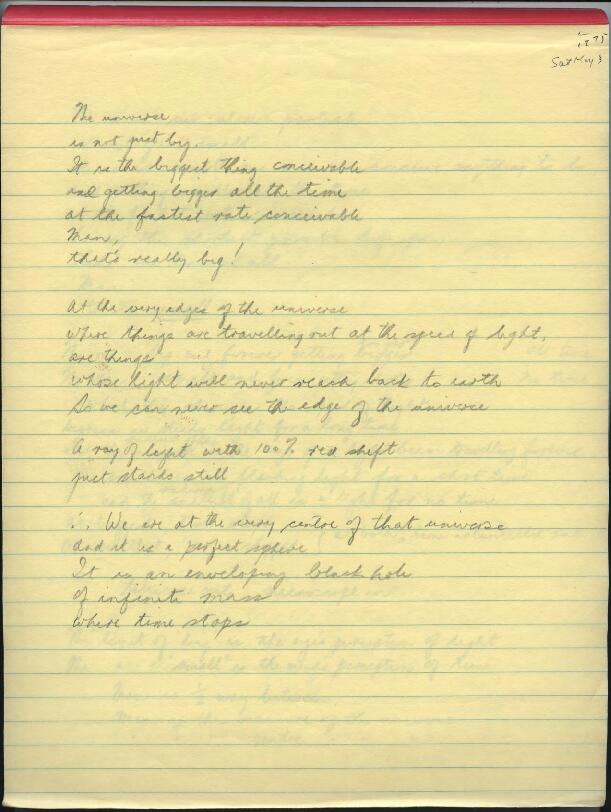 1975
Sat May 3
The universe
is not just big.
It is the biggest thing conceivable
and getting bigger all the time
at the fastest rate conceivable
Man,
that's really big!
At the very edges of the universe
where things are travelling out at the speed of light,
are things
whose light will never reach back to earth
So we can never see the edge of the universe
A ray of light with 100% red shift
just stands still
∴ We are at the very centre of that universe
and it is a perfect sphere
It is an enveloping black hole
of infinite mass
where time stops